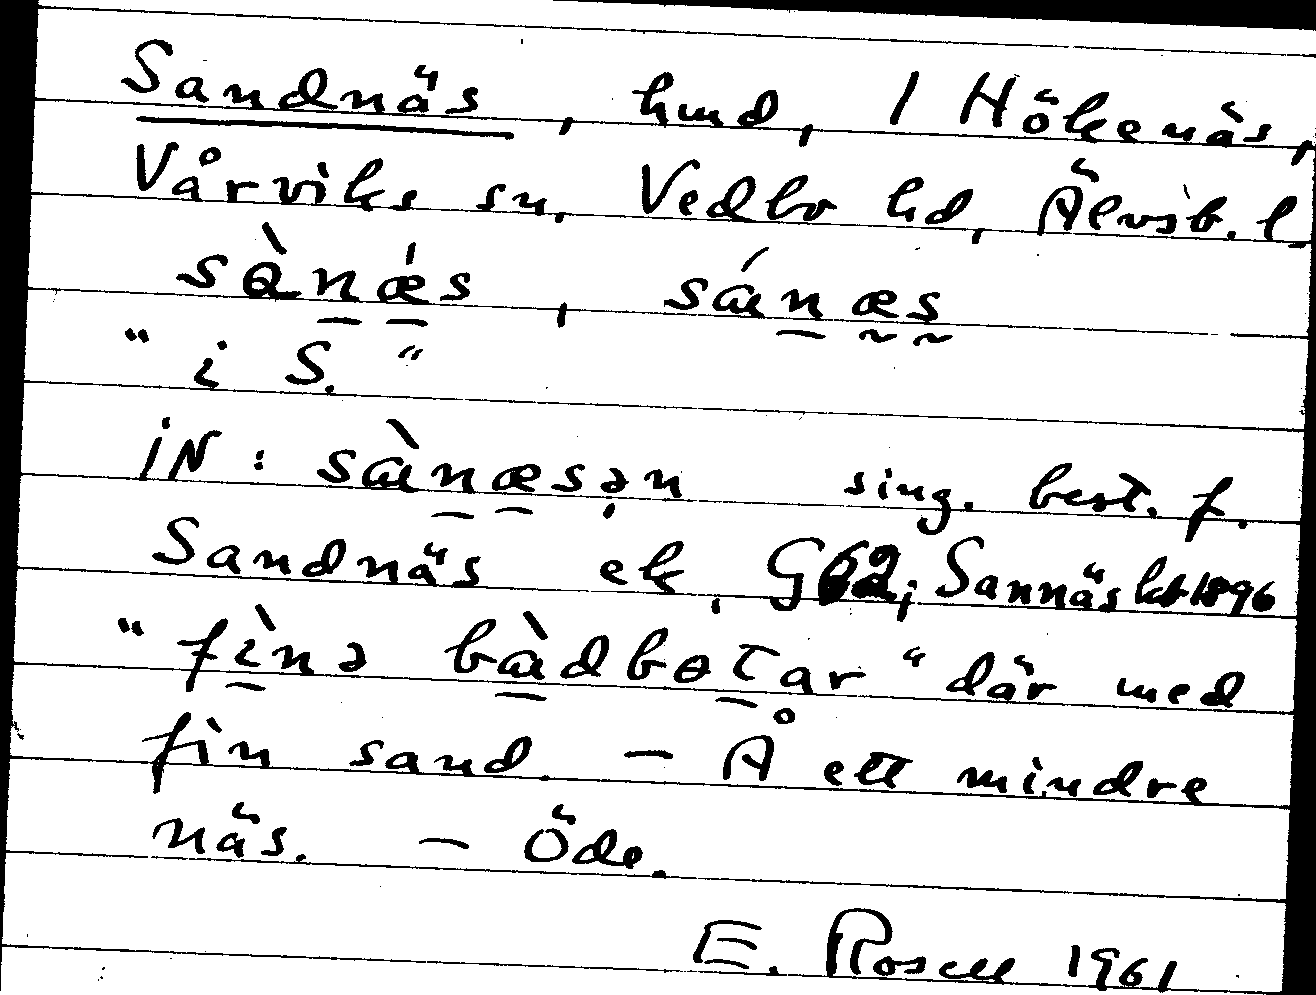 Sandnäs, hmd, 1 Hökenäs,
Vårviks sn. Vedbo hd, Älvsb. l.
sànǽs, sánæs
"i S."
iN: sànæsən sing. best. f.
Sandnäs ek. G62; Sannäs kb 1896
"fìnə bàdbɵtar" där med
fin sand. – Å ett mindre
näs. – Öde.
E. Rosell 1961